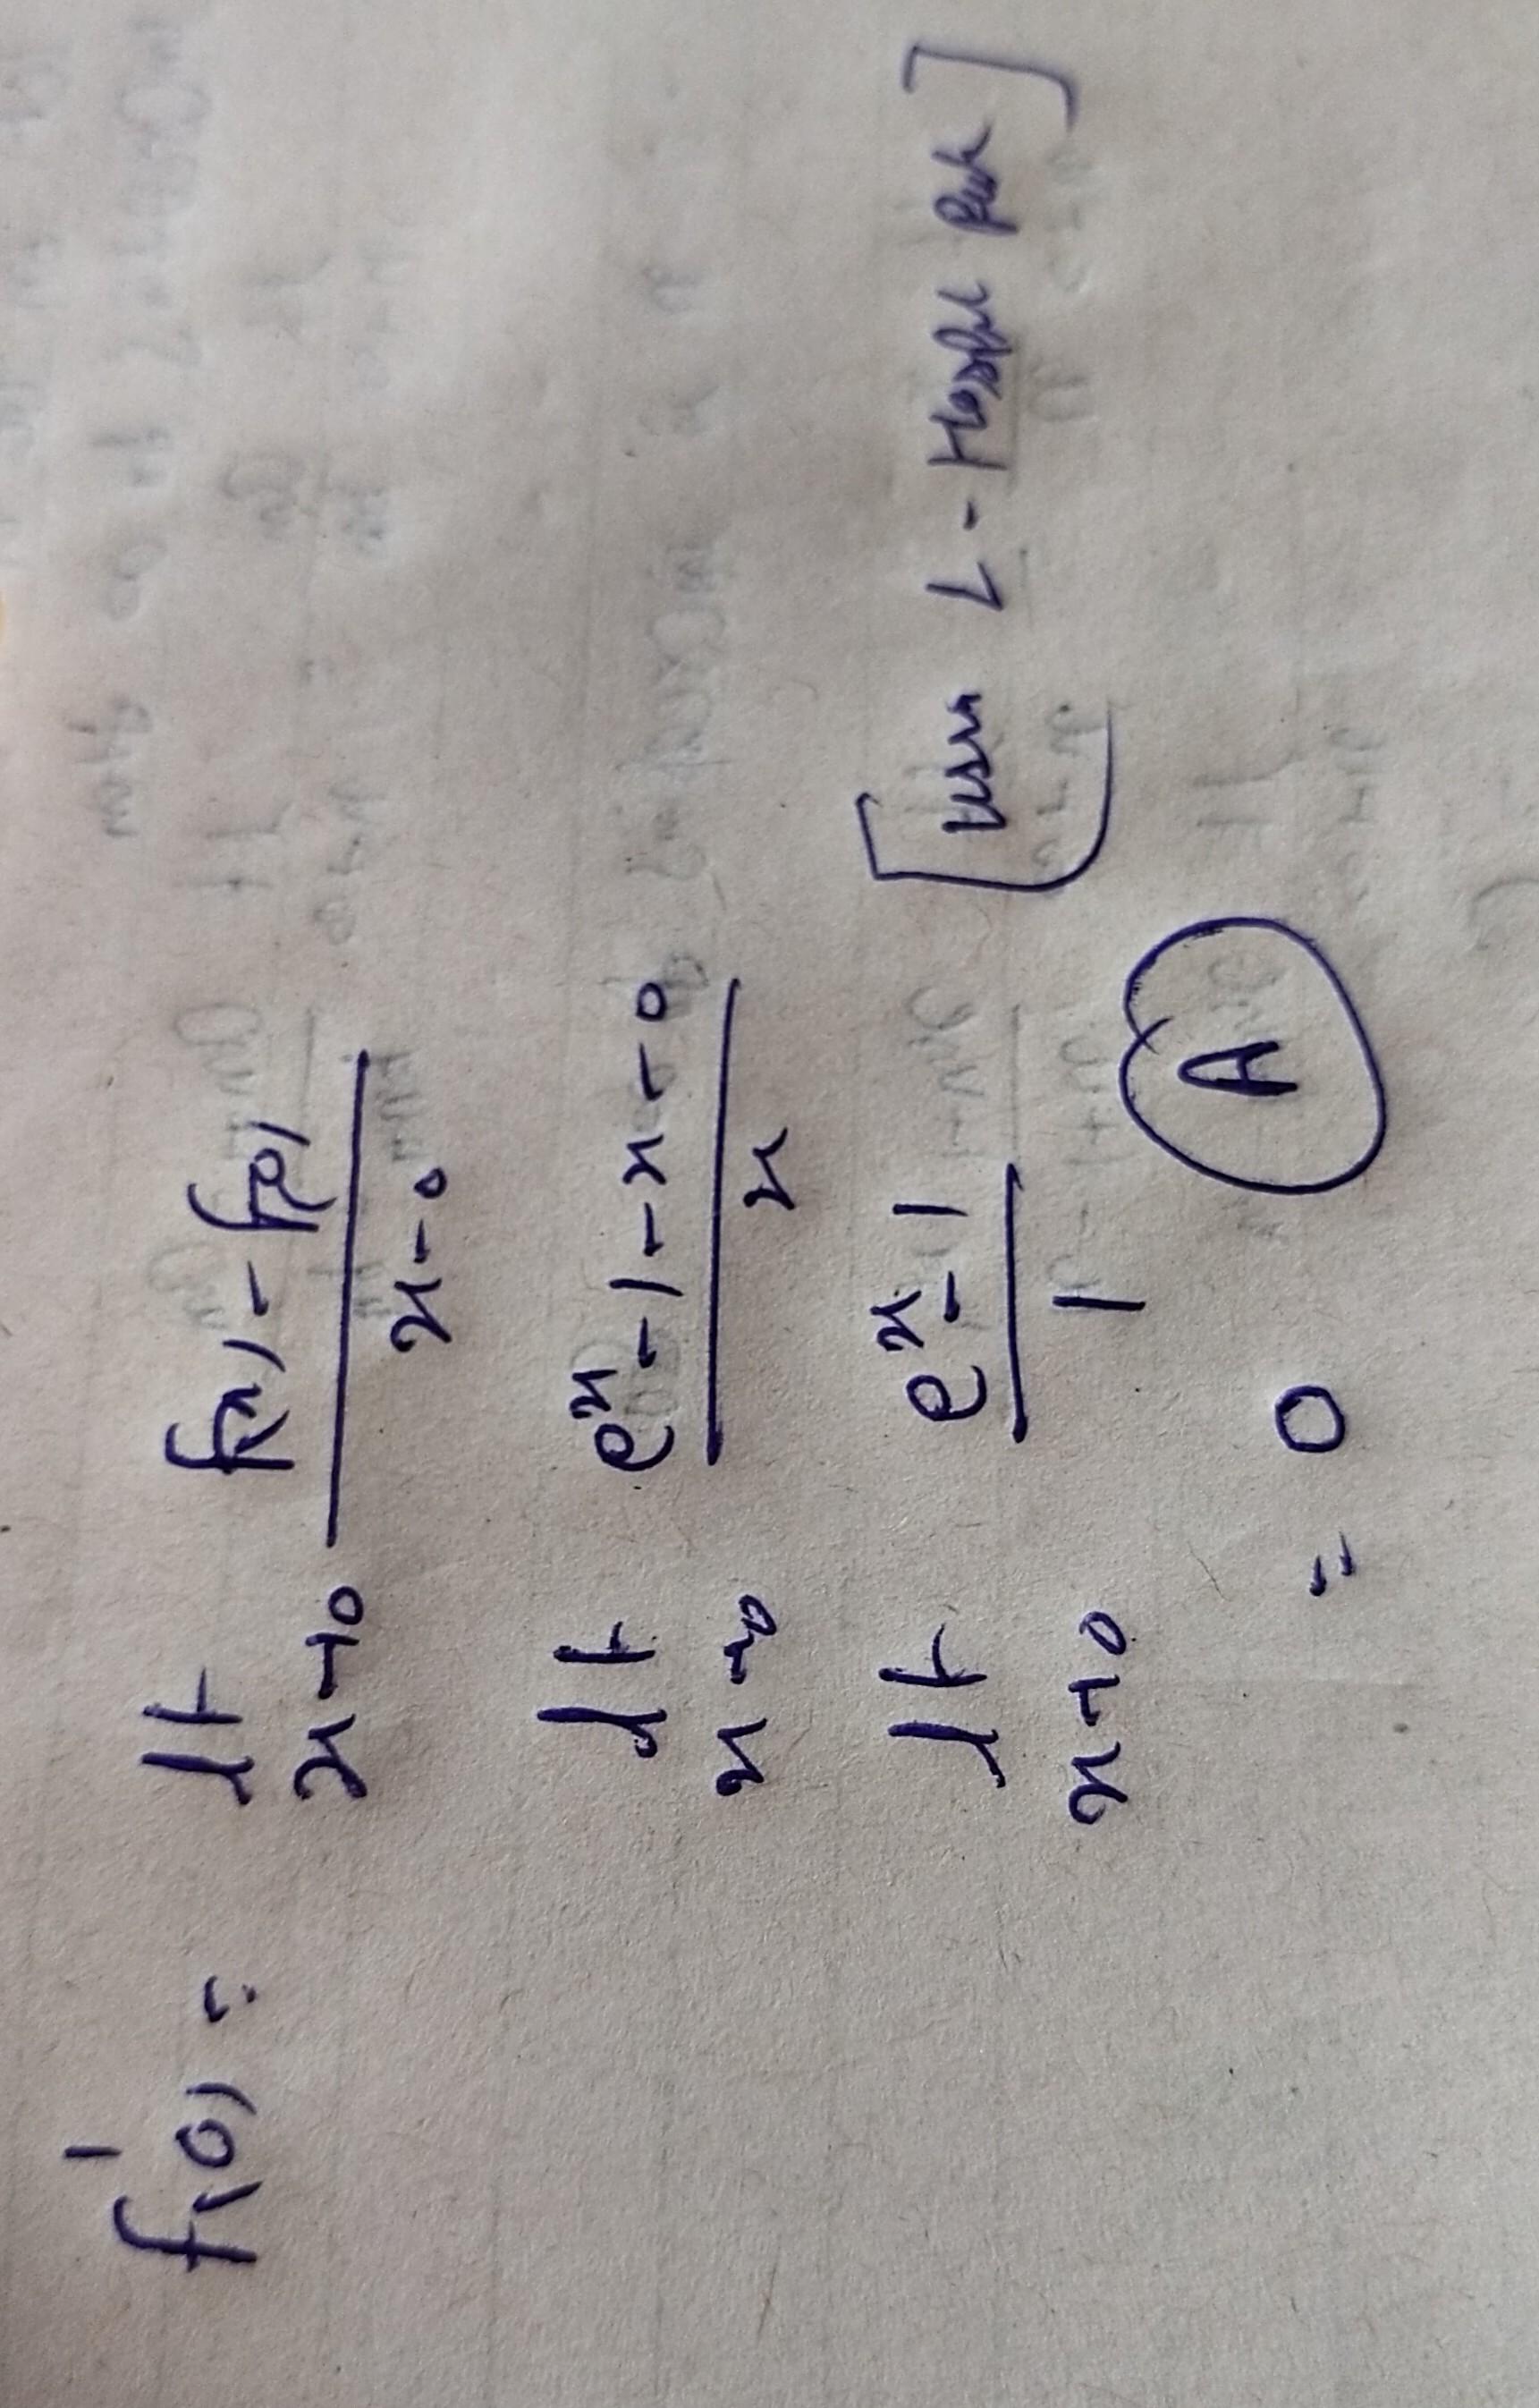 f'(0) = lt x→0 f(x) - f(0) / x-0
lt x→0 e^x - 1 - x - 0 / x
lt x→0 e^x - 1 / 1 [using L-Hospital Rule]
= 0 A